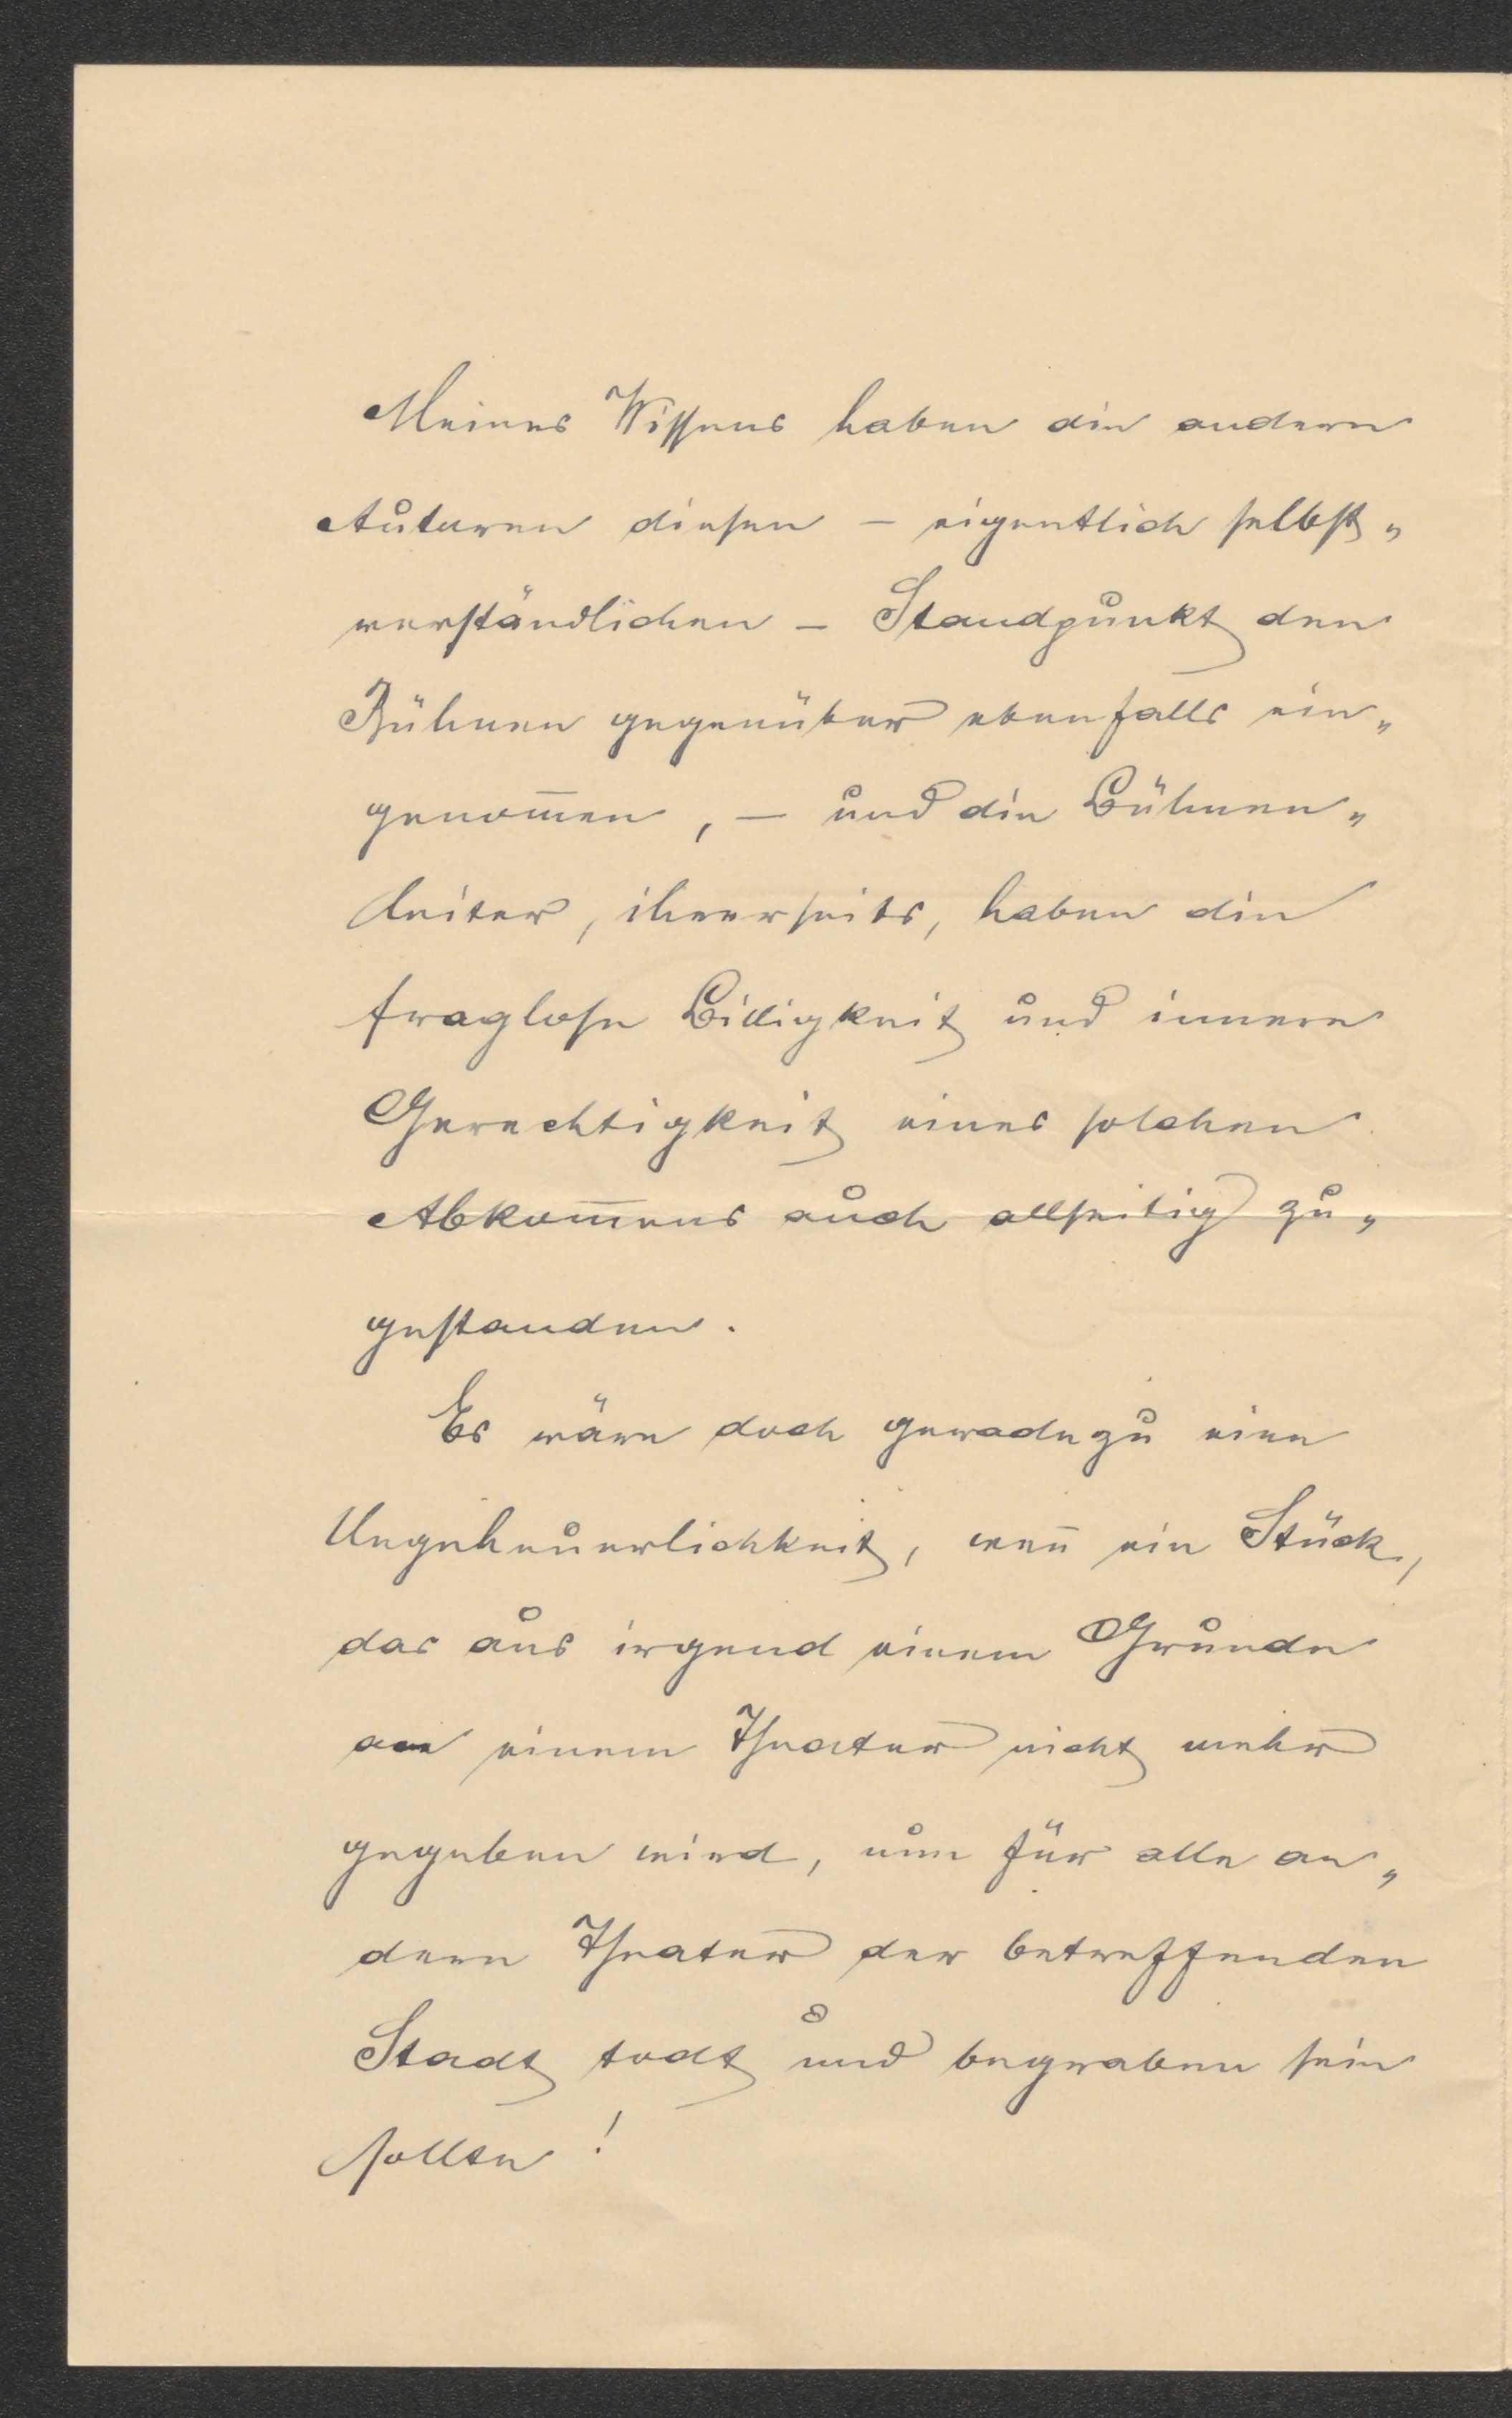 Meines Wissens haben die andern
Autoren diesen – eigentlich selbst„
verständlichen – Standpunkt den
Bühnen gegenüber ebenfalls ein„
genom̅en, – und die Bühnen„
leiter, ihrerseits, haben die
fraglose Billigkeit und innere
Gerechtigkeit eines solchen
Abkom̅ens auch allseitig zu„
gestanden.
Es wäre doch geradezu eine
Ungeheuerlichkeit, wen̅ ein Stück,
das aus irgend einem Grunde
an einem Theater nicht mehr
gegeben wird, nun für alle an„
dern Theater der betreffenden
Stadt todt und begraben sein
sollte!